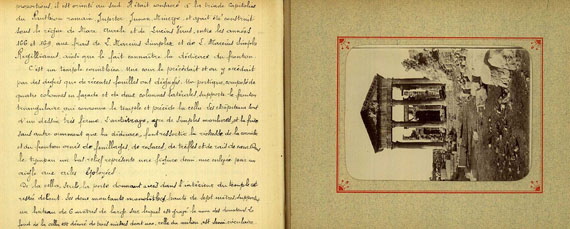 proportions, il est orienté au Sud. Il était consacré à la triade capitoline
du Panthéon romain, Jupiter, Junon, Minerve, et ayant été construit
sous le règne de Marc Aurèle et de Lucius Verus, entre les années
166 et 169, aux frais de L. Marcius Simplex et de L. Marcius Simplex
Regillianus, ainsi que le fait connaître la dédicace du fronton.
C'est un temple corinthien. Une cour le précédait et on y accédait
par des degrés que de récentes fouilles ont dégagés. Un portique, composé de
quatre colonnes en façade et de deux colonnes latérales, supporte le fronton
triangulaire qui couronne le temple et précède la cella. Les chapiteaux sont
d'un dessin très ferme. L'architrave, ornée de simples moulures, et la frise
sans autre ornement que la dédicace, font ressortir la richesse de la corniche
et du fronton ornés de feuillages, de rosaces, de trèfles et de rais de cœur. Dans
le tympan un bas relief représente une figure d'homme enlevée par un
aigle aux ailes éployées.
De la cella, seule, la porte donnant accès dans l'intérieur du temple est
restée debout. Ses deux montants monolithes, hauts de sept mètres, supportent
un linteau de 6 mètres de large sur lequel est gravé le nom des donateurs. Le
fond de la cella est